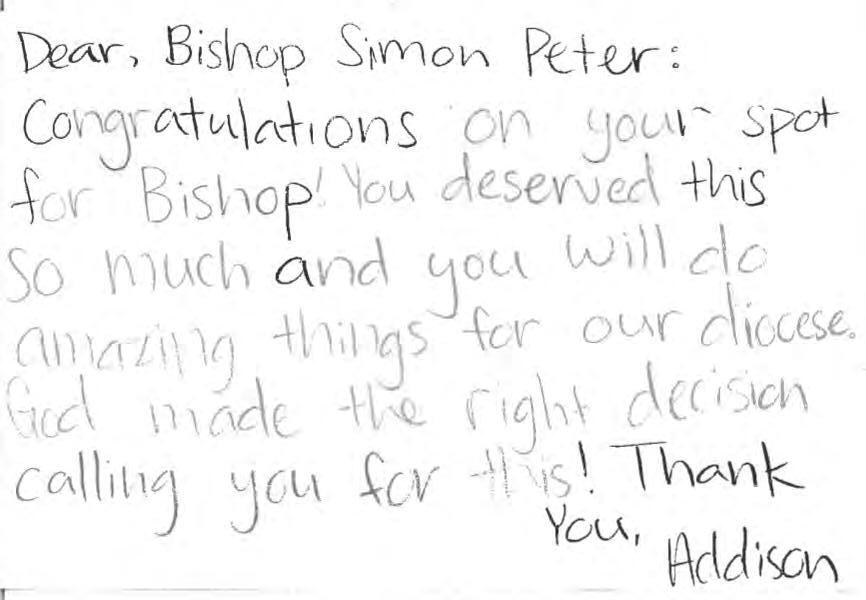 Dear, Bishop Simon Peter:
Congratulations on your spot
for Bishop! You deserved this
so much and you will do
amazing things for our diocese.
God made the right decision
calling you for this! Thank
You,
Addison